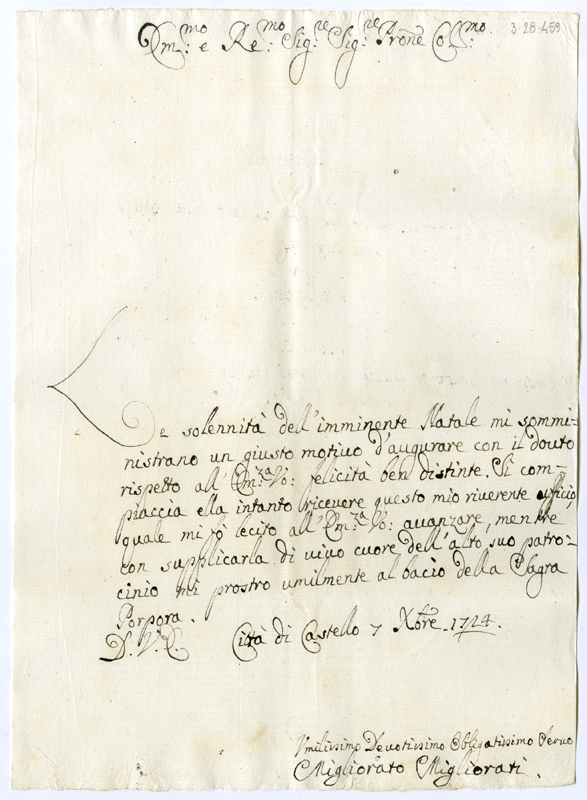 3-28-459
Em:mo e Re:mo Sig:re Sig:re Prõne Col:mo
Le solennità dell'imminente Natale mi sommi=
nistrano un giusto motivo d'augurare con il douto
rispetto all'Em:za Vo: felicità ben distinte. Si com=
piaccia ella intanto riceuere questo mio riuerente ufficio,
quale mi fò lecito all'Em:za Vo: auanzare, mentre
con supplicarla di viuo cuore dell'alto suo patro=
cinio mi prostro umilmente al bacio della Sagra
Porpora.
D. V. E. Città di Castello 7 Xbre 1724.
Vmilissimo Deuotissimo Obligatissimo Seruo
Migliorato Migliorati.